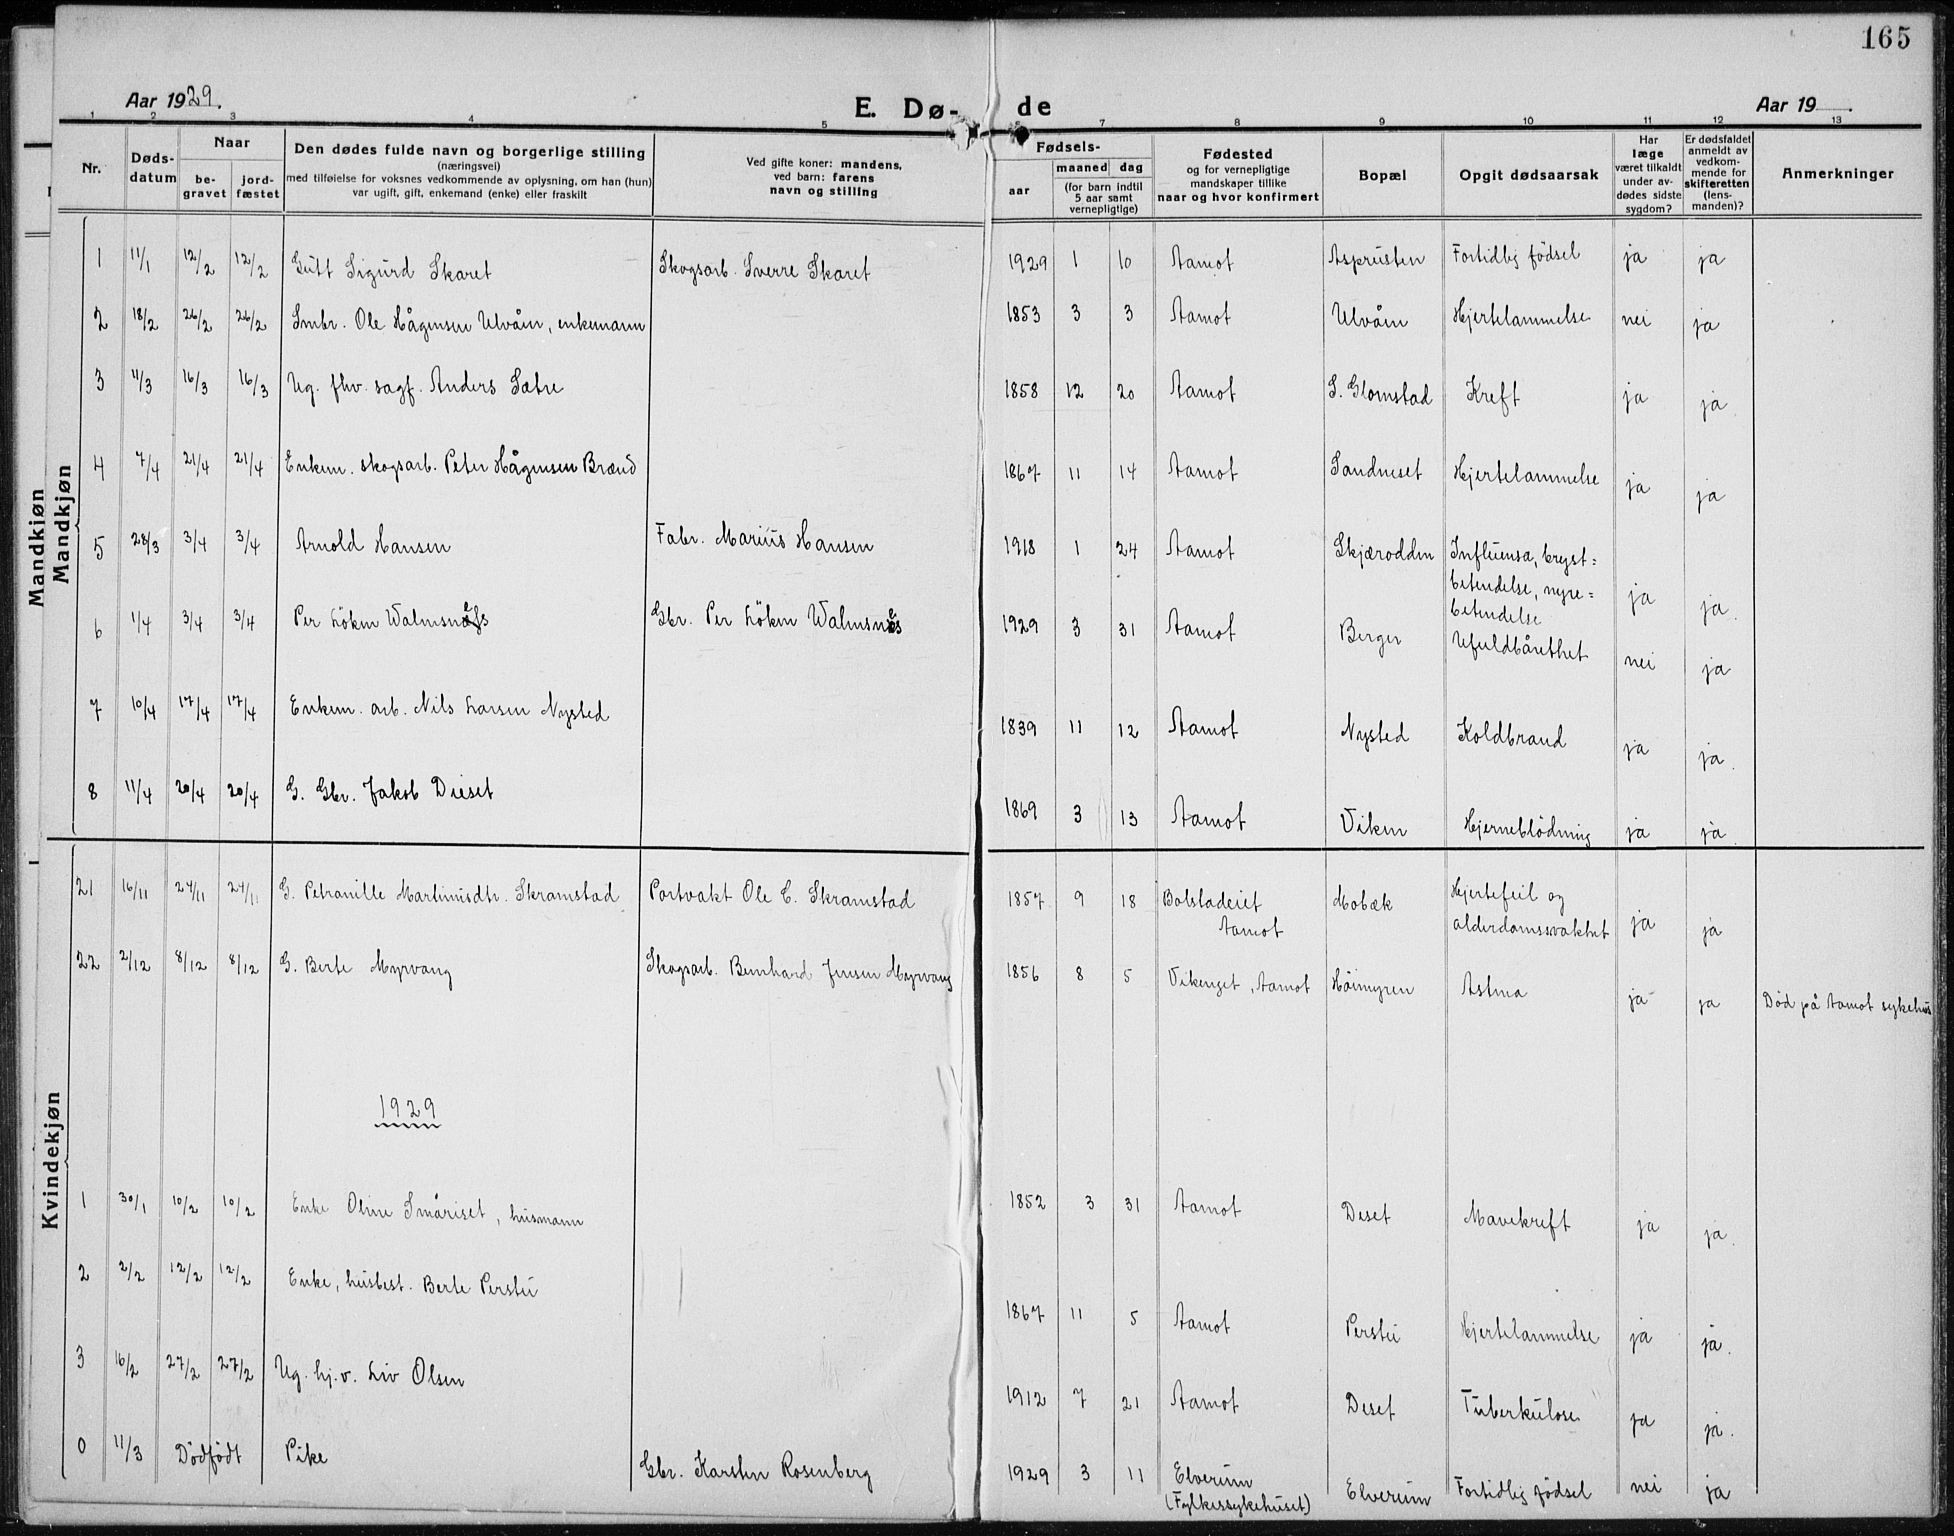 165
Aar 1929.
E. Dø- de
Aar 19 .
1 2 3 4 5 7 8 9 10 11 12 13
Nr.
Døds-
datum
Naar
be-
gravet
jord-
fæstet
Den dødes fulde navn og borgerlige stilling
(næringsvei)
med tilføielse for voksnes vedkommende av oplysning, om han (hun)
var ugift, gift, enkemand (enke) eller fraskilt
Ved gifte koner: mandens,
ved barn: farens
navn og stilling
Fødsels-
aar
maaned dag
(for barn indtil
5 aar samt
vernepligtige)
Fødested
og for vernepligtige
mandskaper tillike
naar og hvor konfirmert
Bopæl
Opgit dødsaarsak
Har
læge
været tilkaldt
under av-
dødes sidste
sygdom?
Er dødsfaldet
anmeldt av
vedkom-
mende for
skifteretten
(lens-
manden)?
Anmerkninger
Mandkjøn
Mandkjøn
1 11/1 12/2 12/2 Gutt Sigurd Skaret Skogsarb. Sverre Skaret 1929 1 10 Aamot Asprusten Fortidlig fødsel ja ja
2 18/2 26/2 26/2 Smbr. Ole Hågensen Ulvåen, enkemann 1853 3 3 Aamot Ulvåen Hjertelammelse nei ja
3 11/3 16/3 16/3 Ug. fhv. sagf. Anders Sætre 1858 12 20 Aamot S. Glomstad Kreft ja ja
4 7/4 21/4 21/4 Enkem. skogsarb. Peter Hågensen Brænd 1867 11 14 Aamot Sandneset Hjertelammelse ja ja
5 28/3 3/4 3/4 Arnold Hansen Fabr. Marius Hansen 1918 1 24 Aamot Skjærodden Influensa, bryst=
betendelse, nyre=
betendelse ja ja.
6 1/4 3/4 3/4 Per Löken Walmsnæs Gbr. Per Löken Walmsnæs 1929 3 31 Aamot Berger Ufuldbårethet nei ja
7 10/4 17/4 17/4 Enkem. arb. Nils Larsen Nysted 1839 11 12 Aamot Nysted Koldbrand ja ja.
8 11/4 20/4 20/4 G. Gbr. Jakob Dieset 1869 3 13 Aamot Viken Hjerneblödning ja ja
Kvindekjøn
21 16/11 24/11 24/11 G. Petranille Martinusdtr. Skramstad Portvakt Ole C. Skramstad 1857 9 18 Bolstadeiet
Aamot Mobæk Hjertefeil og
alderdomssvakhet ja ja
22 2/12 8/12 8/12 G. Berte Myrvang Skogsarb. Bernhard Jensen Myrvang 1856 8 5 Vikenget, Aamot Höimyren Astma ja ja Død på Aamot sykehus
1929
1 30/1 10/2 10/2 Enke Oline Småriset, husmann 1852 3 31 Aamot Deset Mavekreft ja ja.
2 2/2 12/2 12/2 Enke, husbest. Berte Perstu 1867 11 5 Aamot Perstu Hjertelammelse ja ja.
3 16/2 27/2 27/2 Ug. hj.v. Liv Olsen 1912 7 21 Aamot Deset Tuberkulose ja ja.
0 11/3 Dödfödt Pike Gbr. Karsten Rosenberg 1929 3 11 Elverum
(Fylkessykehuset) Elverum Fortidlig fødsel nei ja